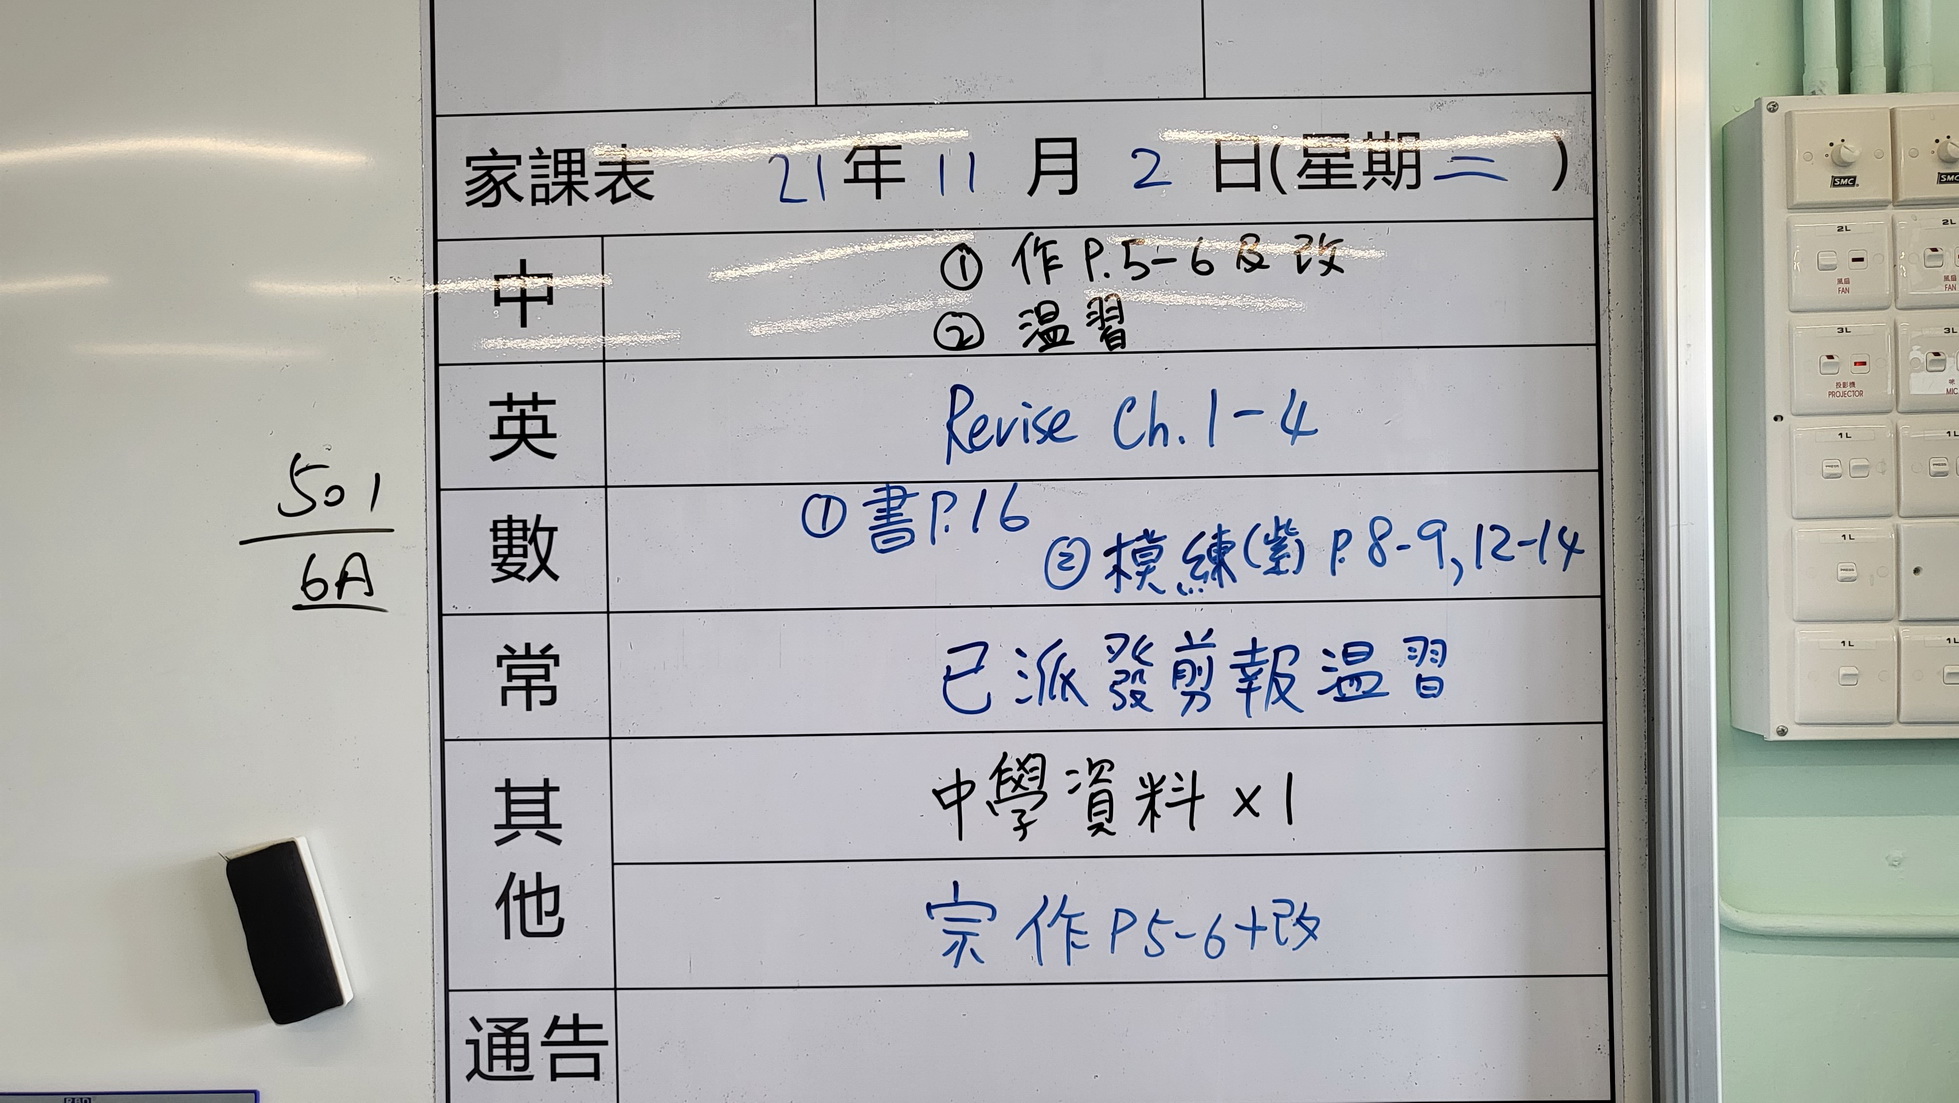 家課表 21年 11 月 2 日(星期二)
中
① 作 P.5-6 及 改
② 温習
英
Revise Ch. 1-4
數
① 書P.16
② 模練(紫) P.8-9, 12-14
常
已派發剪報温習
其他
中學資料 x 1
宗 作 P5-6+改
通告
501
6A
SMC
SMC
2L
風扇
FAN
2L
風扇
FAN
3L
投影機
PROJECTOR
3L
MIC
1L
1L
1L
1L
1L
1L